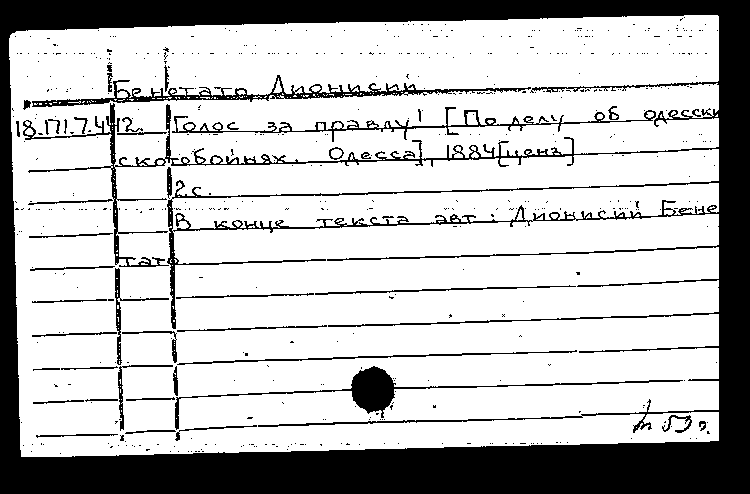 Бенетато, Дионисий
18.171.7.412. Голос за правду! [По делу об одесски
скотобойнях. Одесса], 1884[ценз]
2с.
В конце текста авт: Дионисий Бене
тато